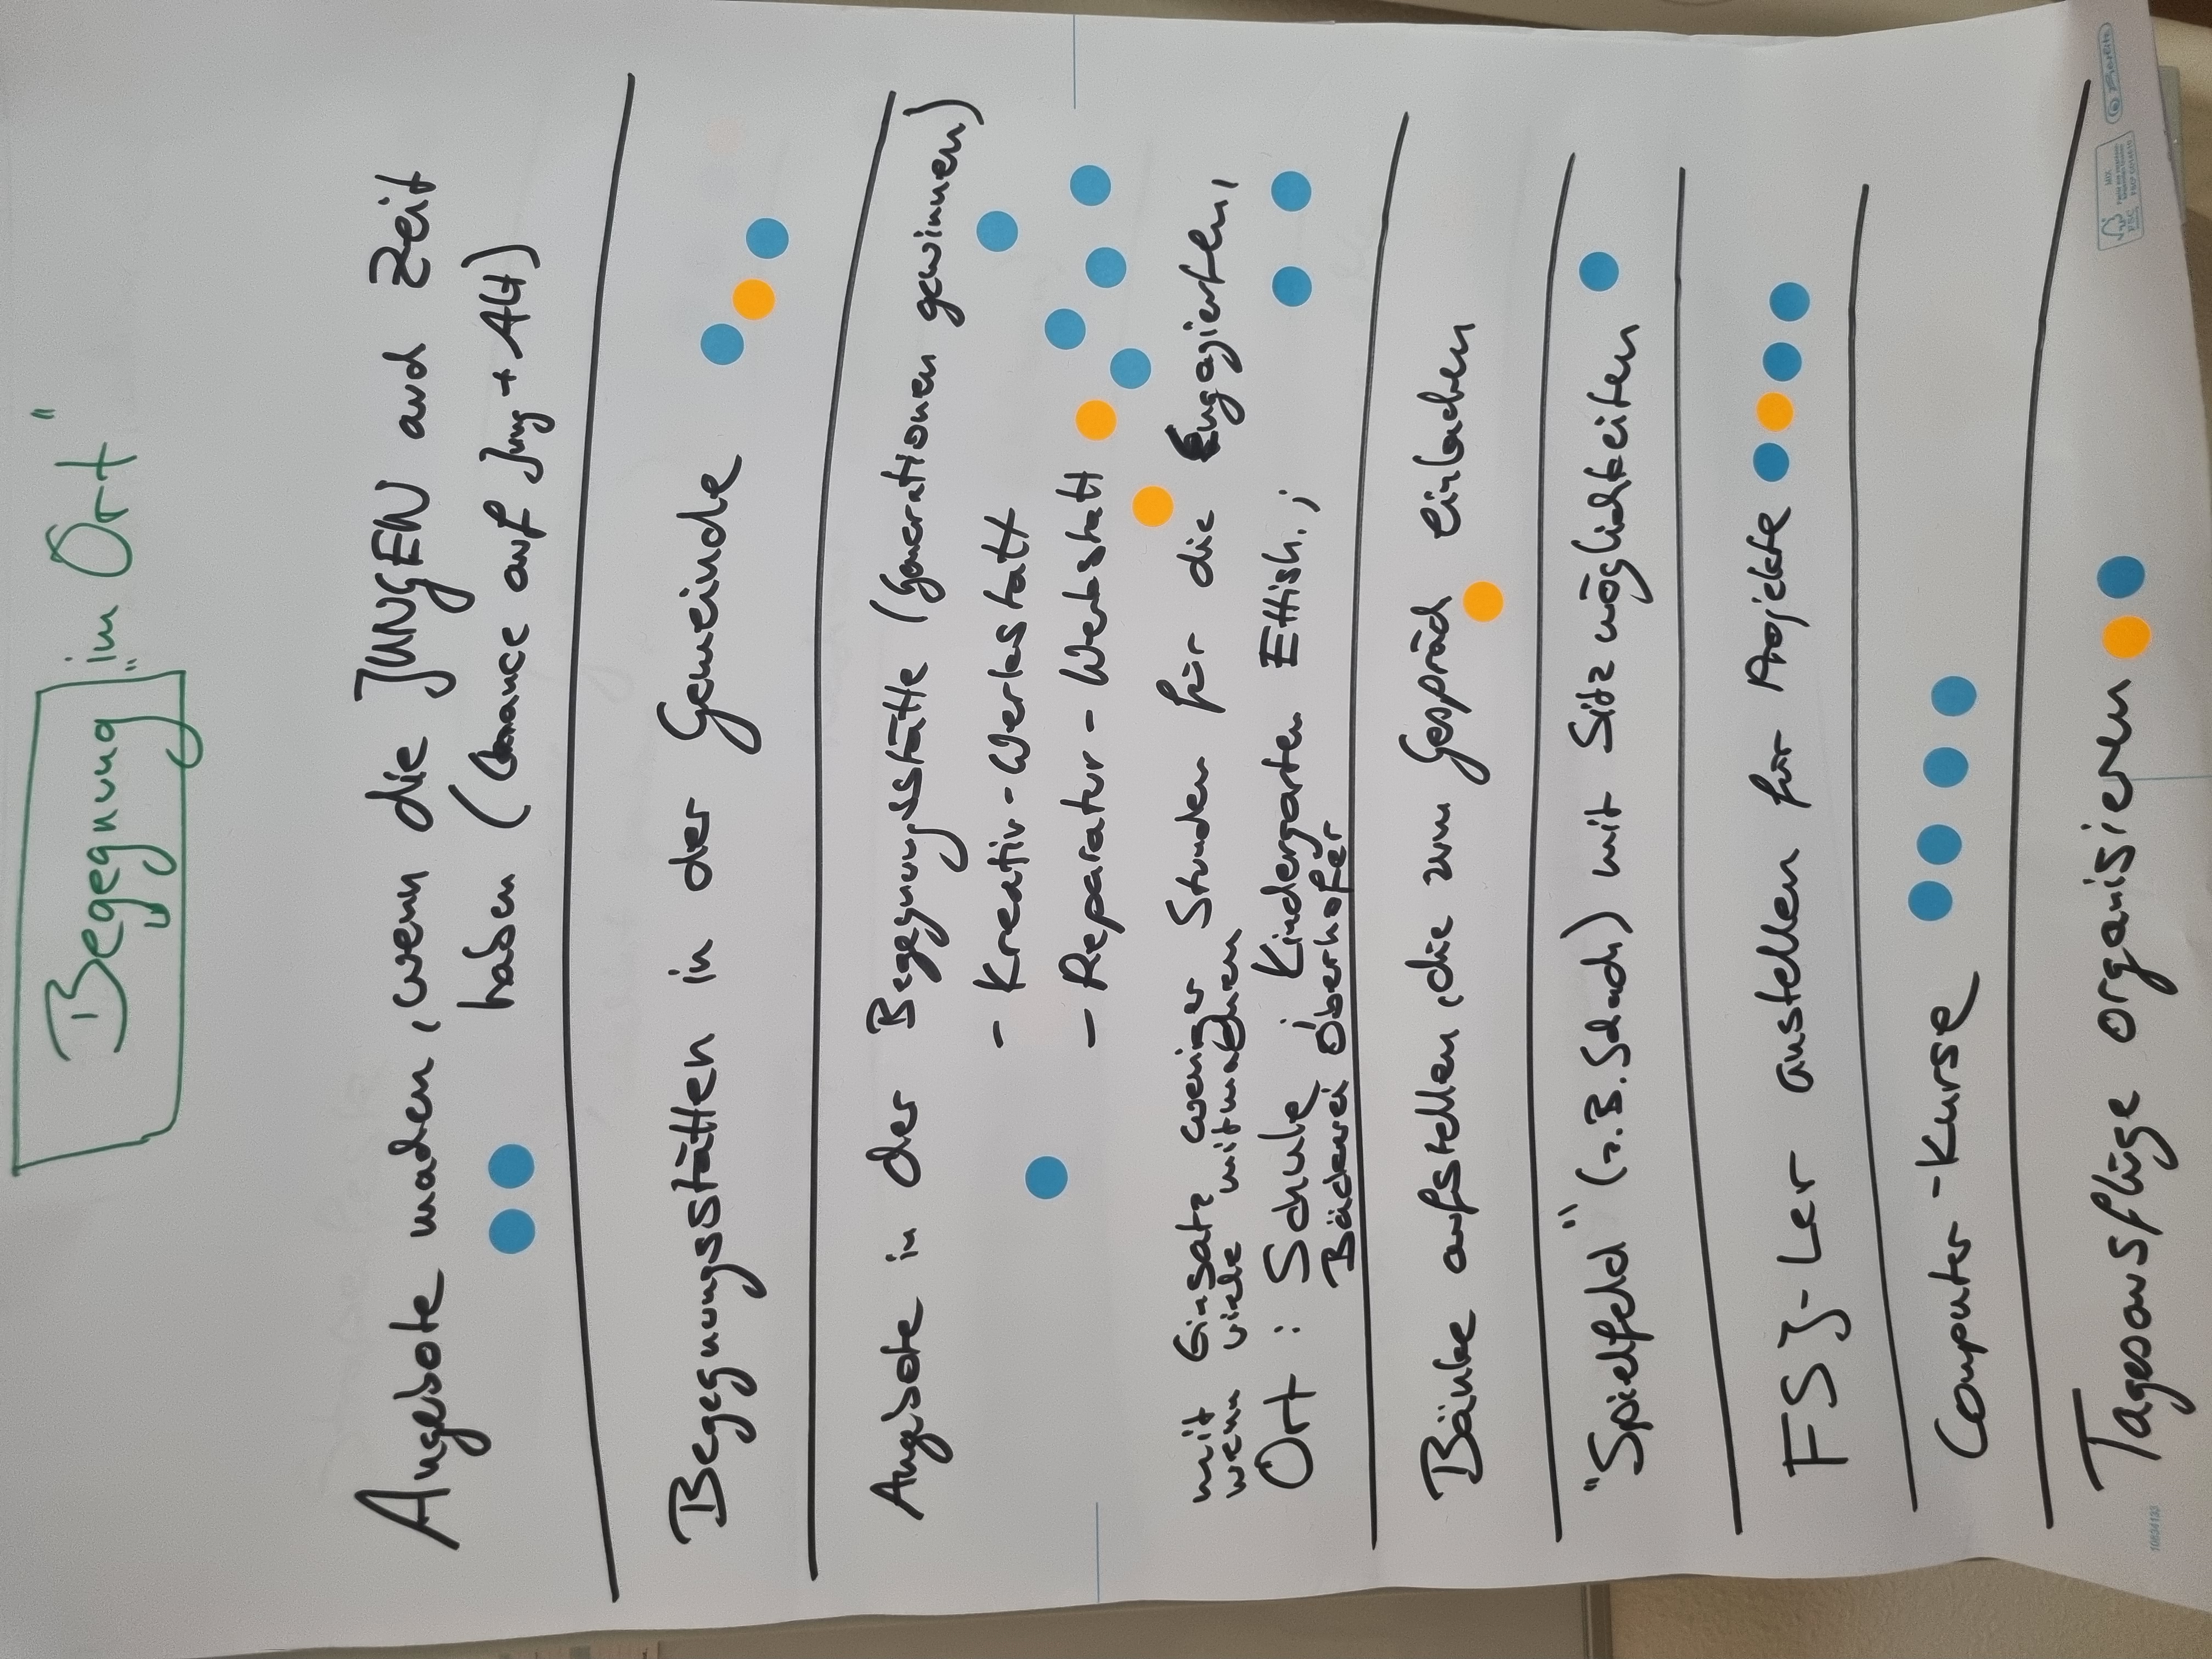 Begegnung „im Ort“
Angebote machen, wenn die JUNGEN auch Zeit
haben (Chance auf Jung + Alt)
Begegnungsstätten in der Gemeinde
Angebote in der Begegnungsstätte (Generationen gewinnen)
- Kreativ-Werkstatt
- Reparatur-Werkstatt
mit Einsatz weniger Stunden für die Engagierten,
wenn viele mitmachen
Ort: Schule; Kindergarten Ettish.;
Bäckerei Oberhofer
Bänke aufstellen, die zum Gespräch einladen
"Spielfeld" (z.B. Schach) mit Sitzmöglichkeiten
FSJ-Ler anstellen für Projekte
Computer-Kurse
Tagesausflüge organisieren
MIX
FSC
10834133